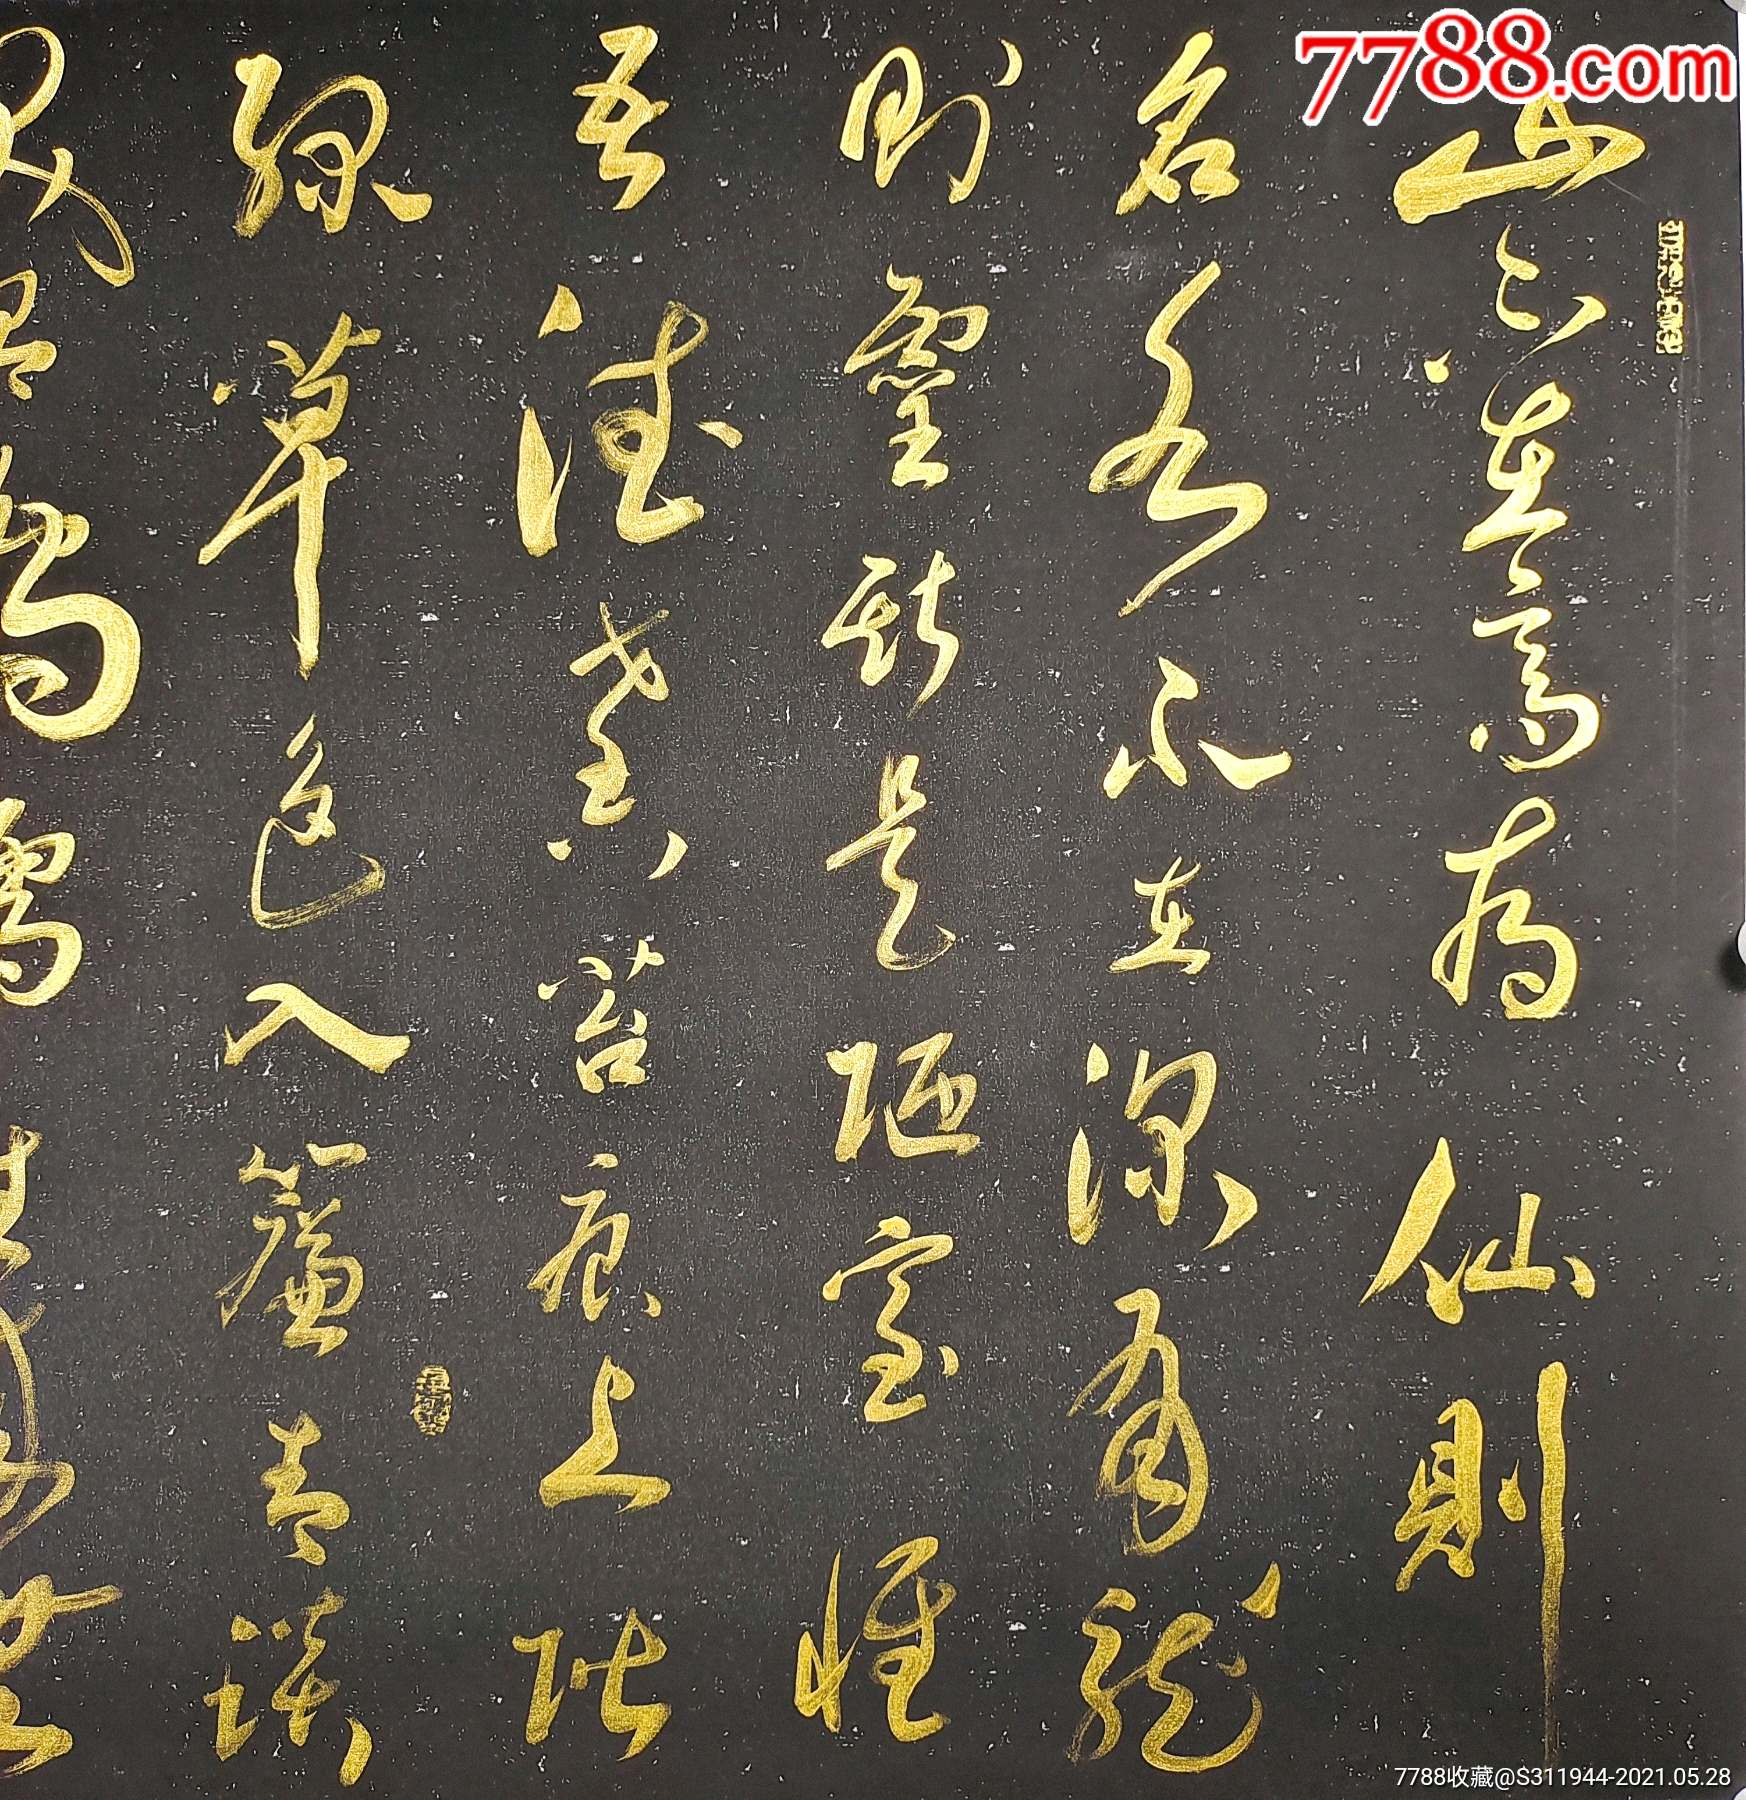 7788.com
山不在高有仙則
名水不在深有龍
則靈斯是陋室惟
吾德馨苔痕上階
綠草色入簾青談
鴻儒往來無
7788收藏@S311944-2021.05.28